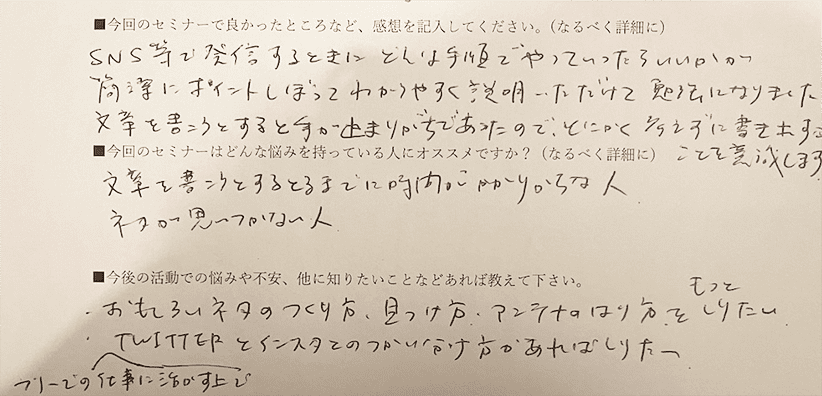 ■今回のセミナーで良かったところなど、感想を記入してください。(なるべく詳細に)
SNS等で発信するときにどんな手順でやっていったらいいかが
簡潔にポイントしぼってわかりやすく説明いただけて勉強になりました
文章を書こうとすると手が止まりがちであったので、とにかく考えずに書き出す
ことを意識します
■今回のセミナーはどんな悩みを持っている人にオススメですか?(なるべく詳細に)
文章を書こうとするまでに時間がかかりがちな人
ネタが思いつかない人
■今後の活動での悩みや不安、他に知りたいことなどあれば教えて下さい。
・おもしろいネタのつくり方、見つけ方、アンテナのはり方をもっとしりたい
・TWITTERとインスタとのつかい分け方があればしりたい
フリーでの仕事に活かす上で